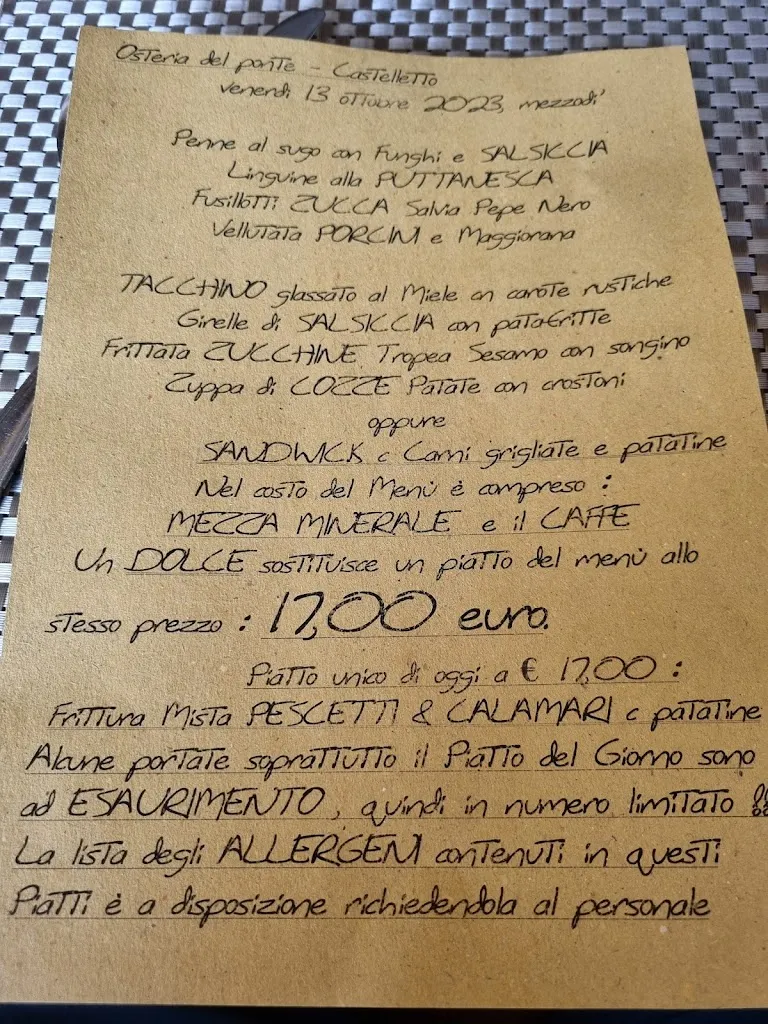 Osteria del ponte - Castelletto
venerdì 13 ottobre 2023, mezzodi'
Penne al sugo con Funghi e SALSICCIA
Linguine alla PUTTANESCA
Fusillotti ZUCCA Salvia Pepe Nero
Vellutata PORCINI e Maggiorana
TACCHINO glassato al Miele cn carote rustiche
Girelle di SALSICCIA con patafritte
Frittata ZUCCHINE Tropea Sesamo con songino
Zuppa di COZZE Patate con crostoni
oppure
SANDWICK c Carni grigliate e patatine
Nel costo del Menù è compreso :
MEZZA MINERALE e il CAFFE
Un DOLCE sostituisce un piatto del menù allo
stesso prezzo : 17,00 euro.
Piatto unico di oggi a € 17,00 :
Frittura Mista PESCETTI & CALAMARI c patatine
Alcune portate soprattutto il Piatto del Giorno sono
ad ESAURIMENTO, quindi in numero limitato !!
La lista degli ALLERGENI contenuti in questi
Piatti è a disposizione richiedendola al personale